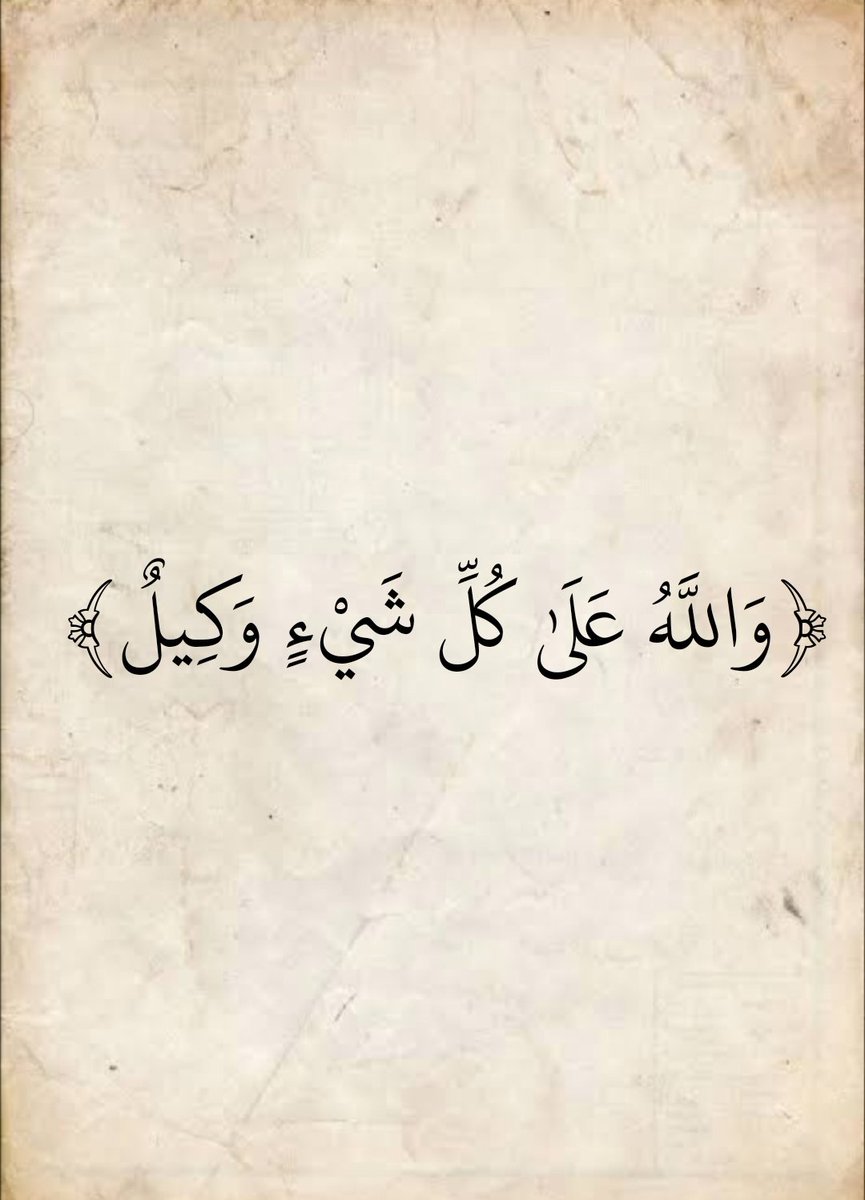 ﴿وَاللَّهُ عَلَىٰ كُلِّ شَيْءٍ وَكِيلٌ﴾